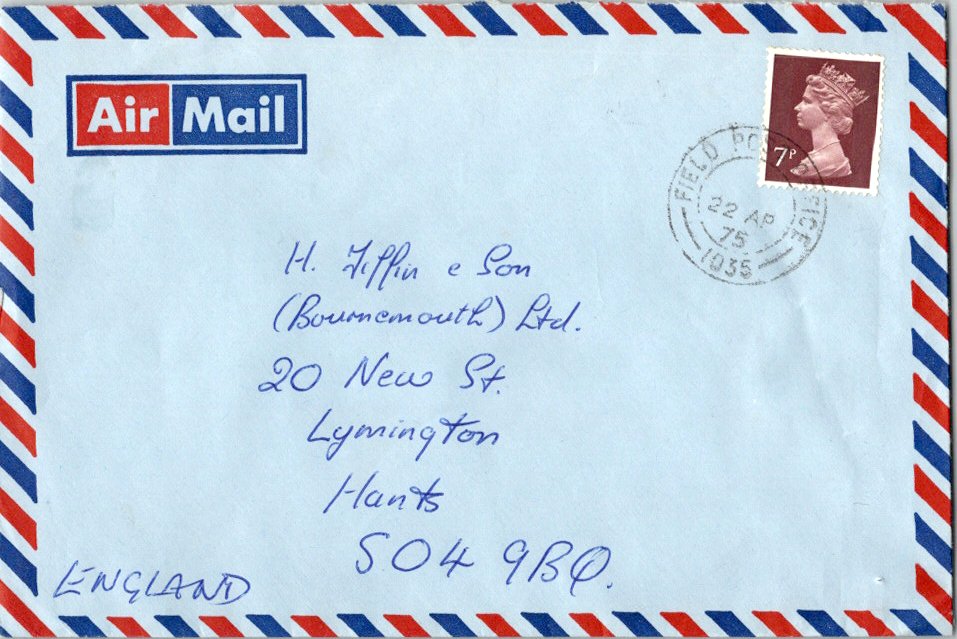 Air Mail
7P
FIELD POST OFFICE
22 AP
75
1035
H. Tiffin e Son
(Bournemouth) Ltd.
20 New St.
Lymington
Hants
SO4 9BQ.
ENGLAND